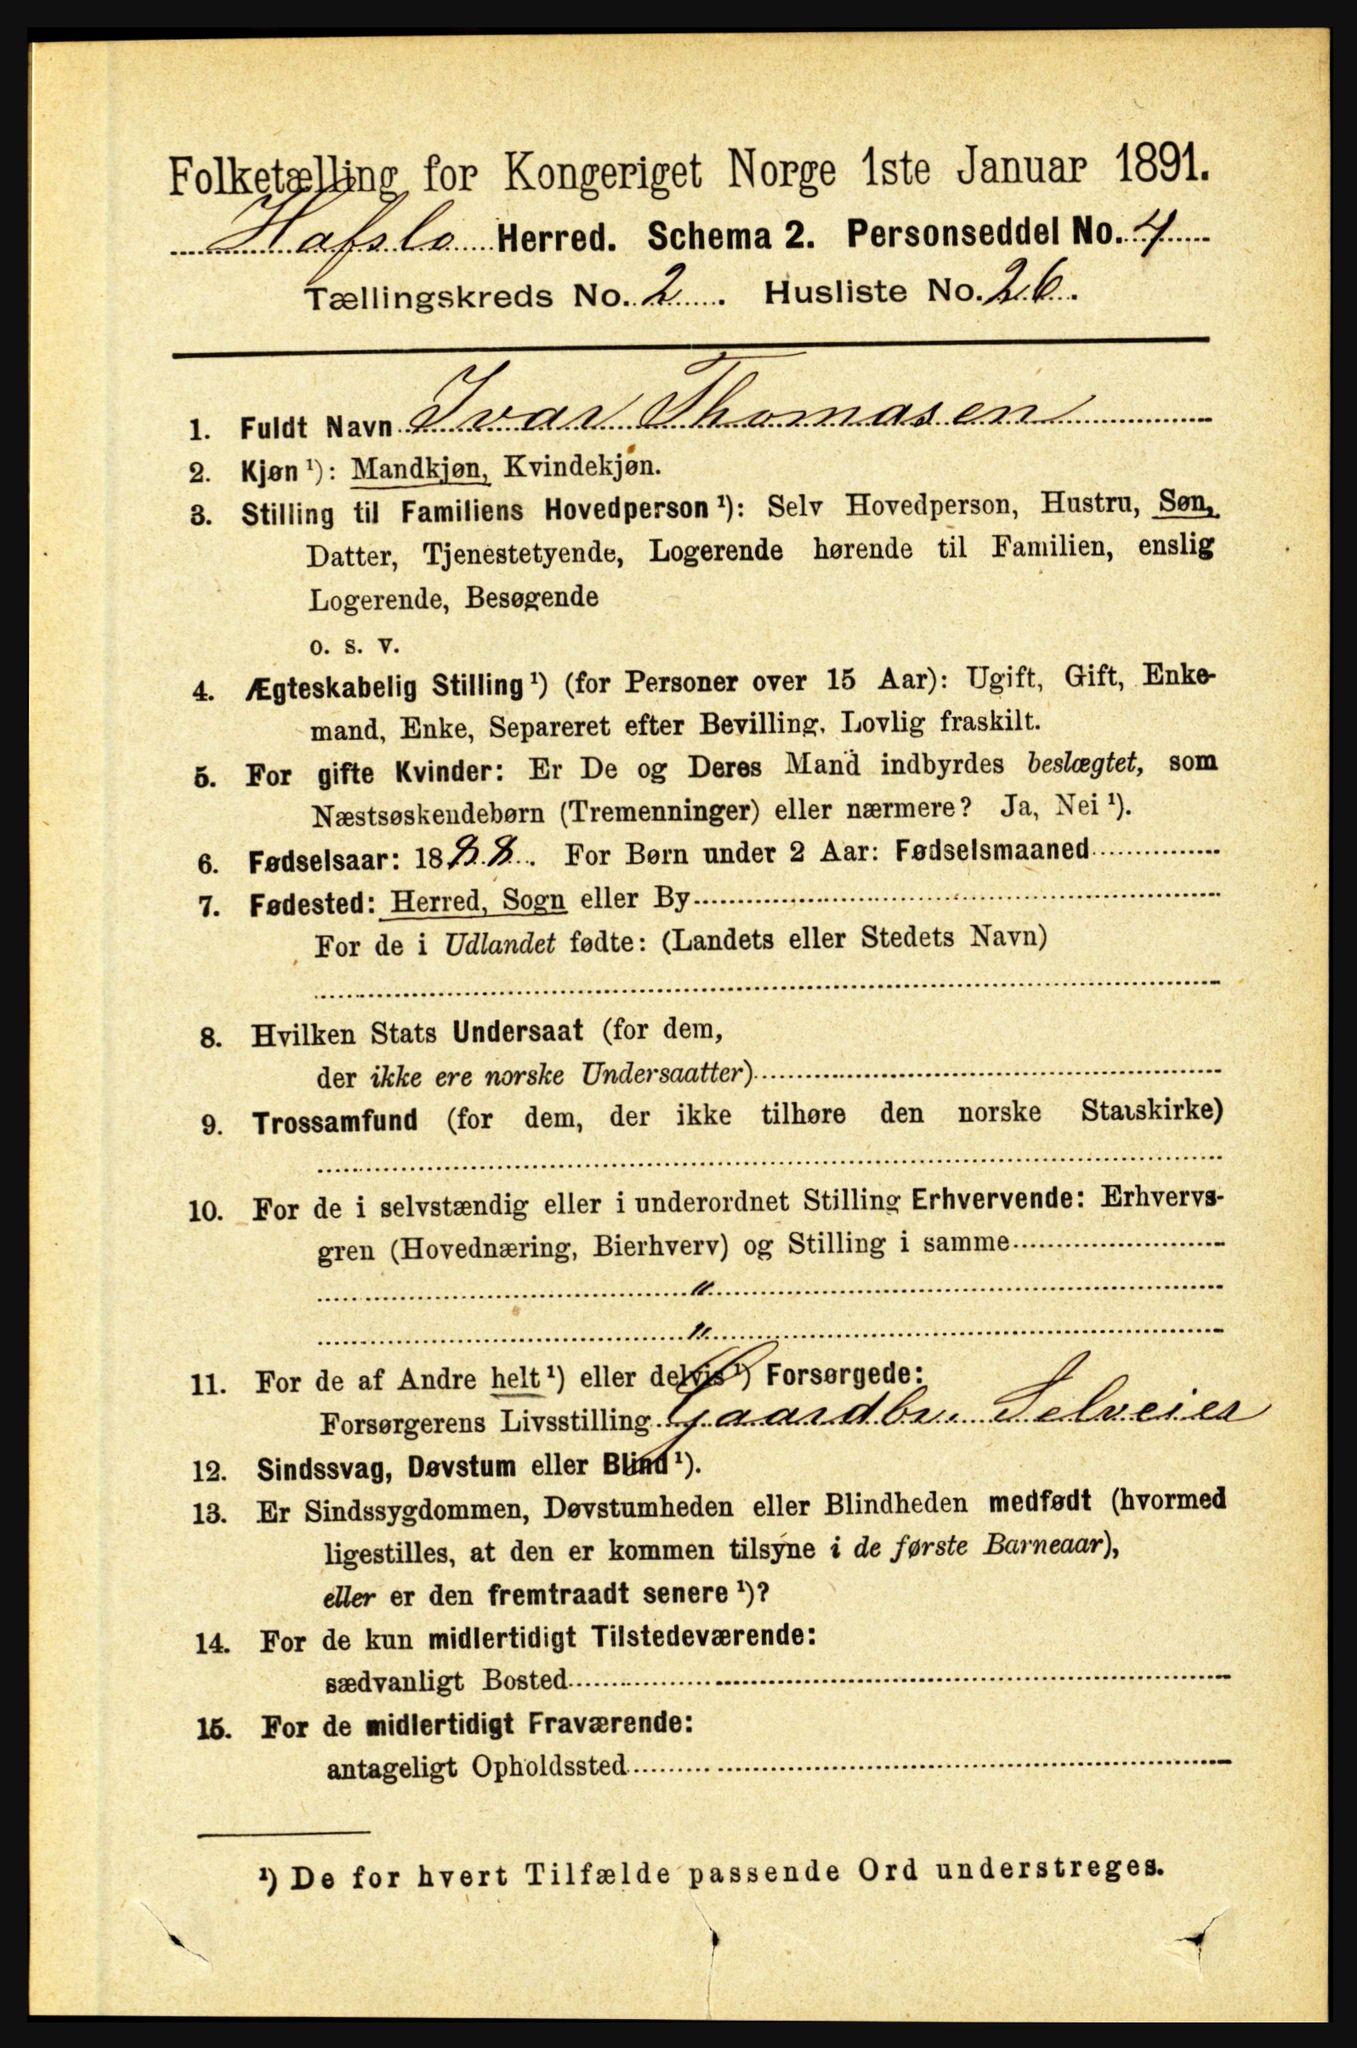 Folketælling for Kongeriget Norge 1ste Januar 1891.
Hafslo Herred. Schema 2. Personseddel No. 4
Tællingskreds No. 2. Husliste No. 26.
1. Fuldt Navn Ivar Thomasen
2. Kjøn ¹): Mandkjøn, Kvindekjøn.
3. Stilling til Familiens Hovedperson ¹): Selv Hovedperson, Hustru, Søn,
Datter, Tjenestetyende, Logerende hørende til Familien, enslig
Logerende, Besøgende
o. s. v.
4. Ægteskabelig Stilling ¹) (for Personer over 15 Aar): Ugift, Gift, Enke-
mand, Enke, Separeret efter Bevilling, Lovlig fraskilt.
5. For gifte Kvinder: Er De og Deres Mand indbyrdes beslægtet, som
Næstsøskendebørn (Tremenninger) eller nærmere? Ja, Nei ¹).
6. Fødselsaar: 1888. For Børn under 2 Aar: Fødselsmaaned
7. Fødested: Herred, Sogn eller By
For de i Udlandet fødte: (Landets eller Stedets Navn)
8. Hvilken Stats Undersaat (for dem,
der ikke ere norske Undersaatter)
9. Trossamfund (for dem, der ikke tilhøre den norske Statskirke)
10. For de i selvstændig eller i underordnet Stilling Erhvervende: Erhvervs-
gren (Hovednæring, Bierhverv) og Stilling i samme
"
"
11. For de af Andre helt ¹) eller delvis ¹) Forsørgede:
Forsørgerens Livsstilling Gaardbr. Selveier
12. Sindssvag, Døvstum eller Blind ¹).
13. Er Sindssygdommen, Døvstumheden eller Blindheden medfødt (hvormed
ligestilles, at den er kommen tilsyne i de første Barneaar),
eller er den fremtraadt senere ¹)?
14. For de kun midlertidigt Tilstedeværende:
sædvanligt Bosted
15. For de midlertidigt Fraværende:
antageligt Opholdssted
¹) De for hvert Tilfælde passende Ord understreges.